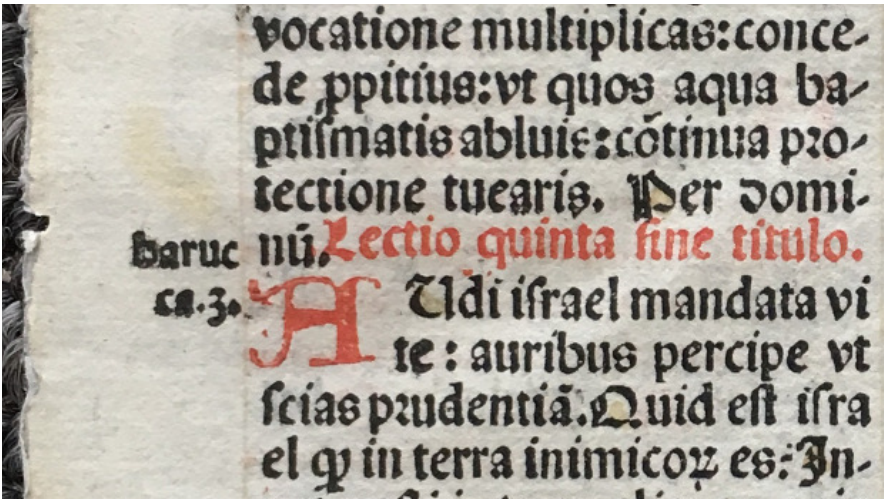 vocatione multiplicas: conce-
de ꝓpitius: vt quos aqua ba-
ptiſmatis abluis: cõtinua pꝛo-
tectione tuearis. Per domi-
baruc nũ. Lectio quinta ſine titulo.
ca. 3. AUdi iſrael mandata vi
te: auribus percipe vt
ſcias pꝛudentiã. Quid eſt iſra
el ꝙ in terra inimicoꝝ es: In-